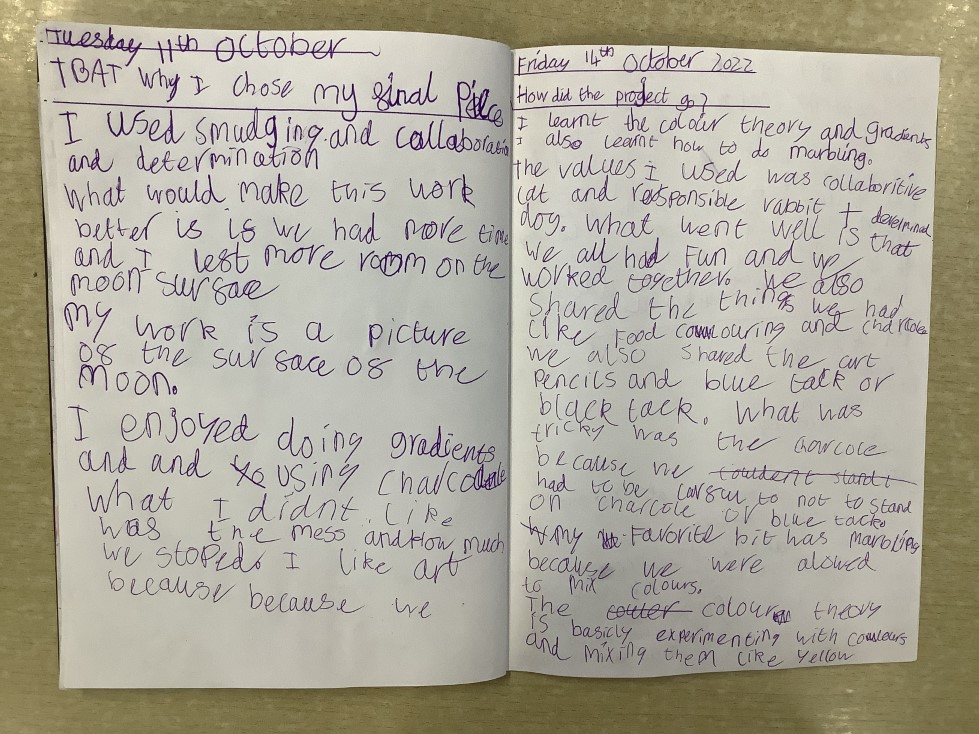 Tuesday 11th October
TBAT why I chose my final Piece
I used smudging and collaboration
and determination
what would make this work
better is is we had more time
and I left more room on the
moon surface
My work is a picture
of the surface of the
Moon.
I enjoyed doing gradients
and and using charcole
what I didnt like
was the mess and How much
we stoped. I like art
because because we
Friday 14th October 2022
How did the project go?
I learnt the colour theory and gradients
I also learnt how to do marbling.
the values I used was collaboritive
cat and responsible rabbit + determined
dog. What went well is that
we all had Fun and we
worked together. We also
Shared the things we had
like Food coulouring and charcole
we also Shared the art
Pencils and blue tack or
black tack. What was
tricky was the charcole
because we couldent stand t
had to be carful to not to stand
on charcole or blue tack.
my Favorite bit has marbling
because we were alowed
to mix colours.
The couler colour theory
is basicly experimenting with coulours
and mixing them like Yellow